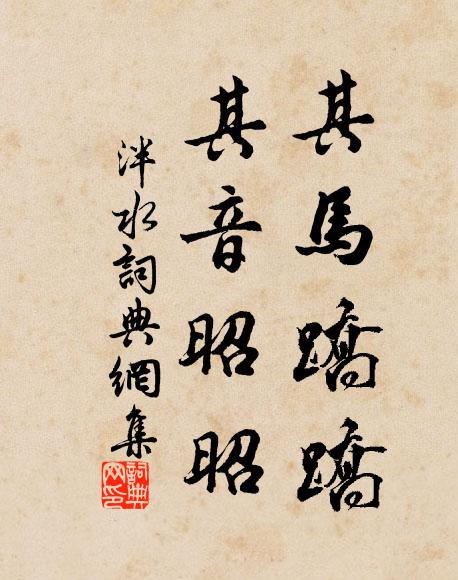 其馬蹻蹻
其音昭昭
泮水詞典網集
詞典網印